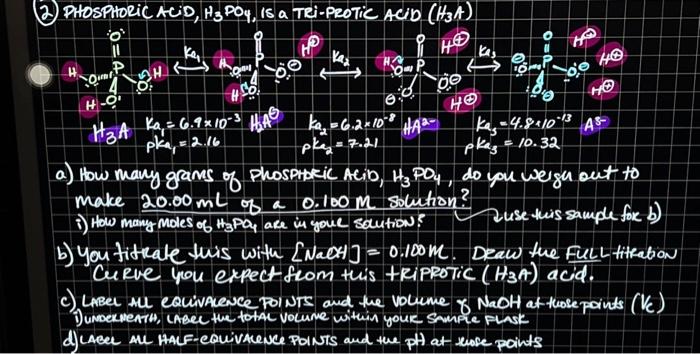 ② PHOSPHORIC ACID, H3PO4, IS A TRI-PROTIC ACID (H3A)
Ka1 Ka2 Ka3
H3A Ka1 = 6.9×10-3 H2A⊖ Ka2 = 6.2×10-8 HA2- Ka3 = 4.8×10-13 A3-
pKa1 = 2.16 pKa2 = 7.21 pKa3 = 10.32
a) How many grams of PHOSPHORIC ACID, H3PO4, do you weigh out to
make 20.00 mL of a 0.100 M solution?
i) How many moles of H3PO4 are in your solution? use this sample for b)
b) You titrate this with [NaOH] = 0.100 M. Draw the FULL titration
curve you expect from this TRIPROTIC (H3A) acid.
c) LABEL ALL EQUIVALENCE POINTS and the volume of NaOH at those points (Ve)
i) UNDERNEATH, LABEL the total volume within your SAMPLE FLASK
d) LABEL ALL HALF-EQUIVALENCE POINTS and the pH at those points